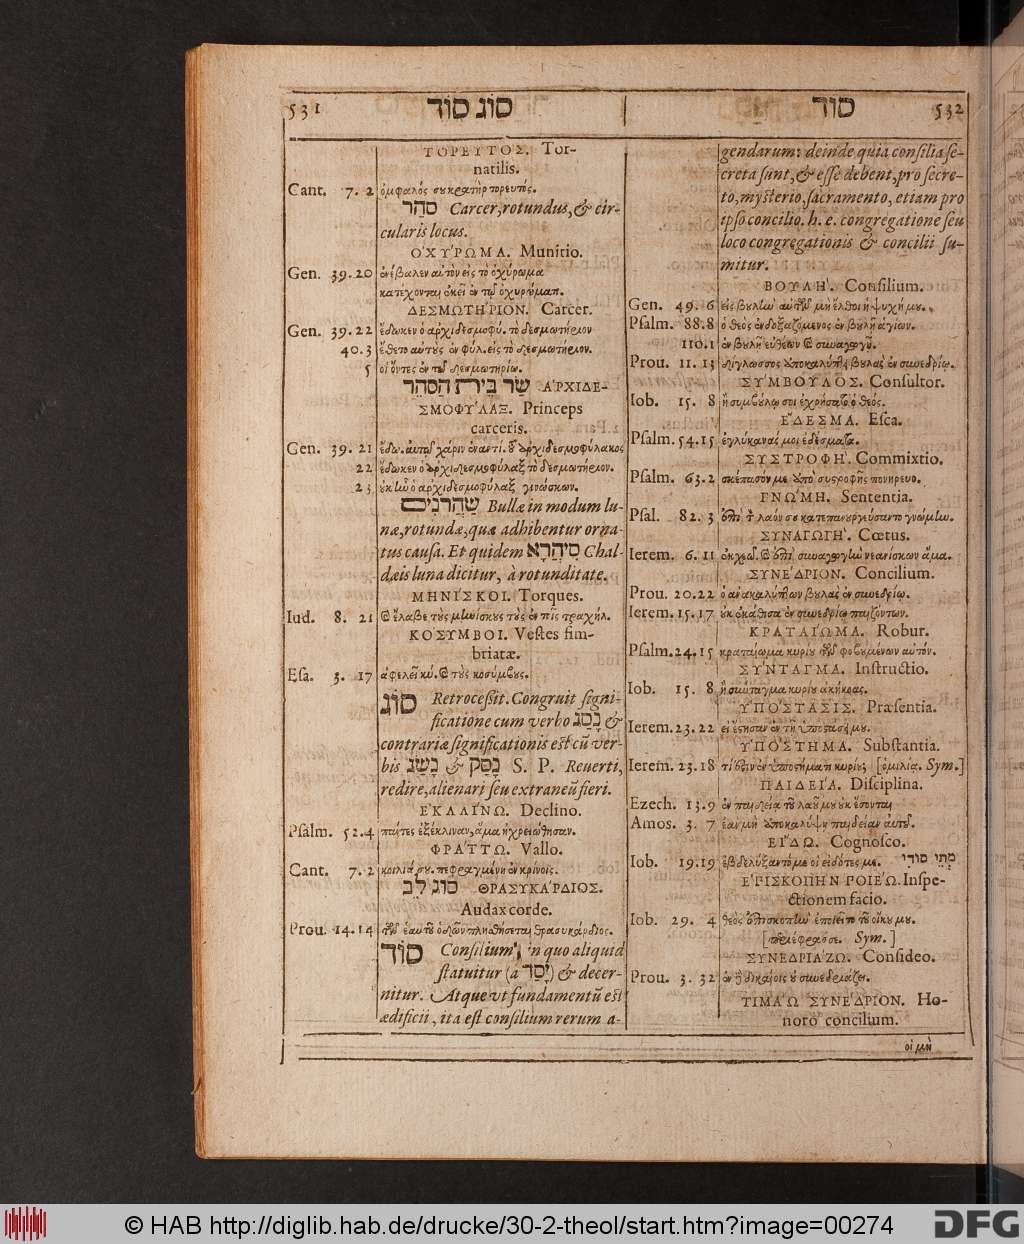 531 סוג סוד
ΤΟΡΕΥΤΟΣ. Tor-
natilis.
Cant. 7. 2 ὀμφαλός σου κρατὴρ τορευτός.
סהר Carcer, rotundus, & cir-
cularis locus.
ΟΧΎΡΩΜΑ. Munitio.
Gen. 39. 20 ἐνέβαλεν αὐτὸν εἰς τὸ ὀχύρωμα
κατέχονται ἐκεῖ ἐν τῷ ὀχυρώματι.
ΔΕΣΜΩΤΉΡΙΟΝ. Carcer.
Gen. 39. 22 ἔδωκεν ὁ ἀρχιδεσμοφύ. τὸ δεσμωτήριον
40. 3 ἔθετο αὐτοὺς ἐν φύλ. εἰς τὸ δεσμωτήριον.
5 οἱ ὄντες ἐν τῷ δεσμωτηρίῳ.
שר בית הסהר ΑΡΧΙΔΕ-
ΣΜΟΦΎΛΑΞ. Princeps
carceris.
Gen. 39. 21 ἔδω. αὐτῷ χάριν ἐναντί. τοῦ ἀρχιδεσμοφύλακος
22 ἔδωκεν ὁ ἀρχιδεσμοφύλαξ τὸ δεσμωτήριον.
23 οὐκ ἦν ὁ ἀρχιδεσμοφύλαξ γινώσκων.
שהרנים Bullæ in modum lu-
næ, rotundæ, quæ adhibentur orna-
tus causa. Et quidem סיהרא Chal-
dæis luna dicitur, à rotunditate.
ΜΗΝΊΣΚΟΙ. Torques.
Iud. 8. 21 καὶ ἔλαβε τοὺς μηνίσκους τοὺς ἐν τοῖς τραχήλ.
ΚΌΣΥΜΒΟΙ. Vestes fim-
briatæ.
Esa. 3. 17 ἀφελεῖ κύ. καὶ τοὺς κοσύμβους.
סוג Retrocessit. Congruit signi-
ficatione cum verbo נסג &
contrariæ significationis est cū ver-
bis נסק & נשג S. P. Reuerti,
redire, alienari seu extraneū fieri.
ΕΚΛΛΙΝΩ. Declino.
Psalm. 52. 4 πάντες ἐξέκλιναν, ἅμα ἠχρειώθησαν.
ΦΡΆΤΤΩ. Vallo.
Cant. 7. 2 κοιλία σου. πεφραγμένη ἐν κρίνοις.
סוג לב ΘΡΑΣΥΚΆΡΔΙΟΣ.
Audax corde.
Prou. 14. 14 τῶν ἑαυτοῦ ὁδῶν πλησθήσεται θρασυκάρδιος.
סוד Consilium, in quo aliquid
statuitur (à יסד) & decer-
nitur. Atque vt fundamentū est
ædificii, ita est consilium rerum a-
סוד 532
gendarum: deinde quia consilia se-
creta sunt, & esse debent, pro secre-
to, mysterio, sacramento, etiam pro
ipso concilio. h. e. congregatione seu
loco congregationis & concilii su-
mitur.
ΒΟΥΛΉ. Consilium.
Gen. 49. 6 εἰς βουλὴν αὐτῶν μὴ ἔλθοι ἡ ψυχή μου.
Psalm. 88. 8 ὁ θεὸς ἐνδοξαζόμενος ἐν βουλῇ ἁγίων.
110. 1 ἐν βουλῇ εὐθέων καὶ συναγωγῇ.
Prou. 11. 13 δίγλωσσος ἀποκαλύπτει βουλὰς ἐν συνεδρίῳ.
ΣΎΜΒΟΥΛΟΣ. Consultor.
Iob. 15. 8 ἢ συμβούλῳ σοι ἐχρήσατο ὁ θεός.
ΕΔΕΣΜΑ. Esca.
Psalm. 54. 15 ἐγλύκανάς μοι ἐδέσματα.
ΣΥΣΤΡΟΦΉ. Commixtio.
Psalm. 63. 2 σκέπασόν με ἀπὸ συστροφῆς πονηρευο.
ΓΝΏΜΗ. Sententia.
Psal. 82. 3 ἐπὶ τὸν λαόν σου κατεπανουργεύσαντο γνώμην.
ΣΥΝΑΓΩΓΉ. Cœtus.
Ierem. 6. 11 ἐκχεῶ. καὶ ἐπὶ συναγωγὴν νεανίσκων ἅμα.
ΣΥΝΈΔΡΙΟΝ. Concilium.
Prou. 20. 22 ὁ ἀνακαλύπτων βουλὰς ἐν συνεδρίῳ.
Ierem. 15. 17 οὐκ ἐκάθισα ἐν συνεδρίῳ παιζόντων.
ΚΡΑΤΑΙΩΜΑ. Robur.
Psalm. 24. 15 κραταίωμα κυρίου τῶν φοβουμένων αὐτόν.
ΣΎΝΤΑΓΜΑ. Instructio.
Iob. 15. 8 ἢ σύνταγμα κυρίου ἀκήκοας.
ΥΠΌΣΤΑΣΙΣ. Præsentia.
Ierem. 23. 22 εἰ ἔστησαν ἐν τῇ ὑποστάσει μου.
ΥΠΌΣΤΗΜΑ. Substantia.
Ierem. 23. 18 τίς ἔστιν ἐν ὑποστήματι κυρίου; [ὁμιλία. Sym.]
ΠΑΙΔΕΊΑ. Disciplina.
Ezech. 13. 9 ἐν παιδείᾳ τοῦ λαοῦ μου οὐκ ἔσονται
Amos. 3. 7 ἐὰν μὴ ἀποκαλύψῃ παιδείαν αὐτοῦ.
ΕΙΔΩ. Cognosco.
Iob. 19. 19 ἐβδελύξαντό με οἱ εἰδότες με. מתי סודי
ΕΠΙΣΚΟΠΗΝ ΠΟΙΕΩ. Inspe-
ctionem facio.
Iob. 29. 4 θεὸς ἐπισκοπὴν ἐποιεῖτο τοῦ οἴκου μου.
[περιέφρασσε. Sym.]
ΣΥΝΕΔΡΙΆΖΩ. Consideo.
Prou. 3. 32 ἐν δὲ δικαίοις οὐ συνεδριάζει.
ΤΙΜΑΏ ΣΥΝΈΔΡΙΟΝ. Ho-
noro concilium.
οἱ μὴ
© HAB http://diglib.hab.de/drucke/30-2-theol/start.htm?image=00274
DFG